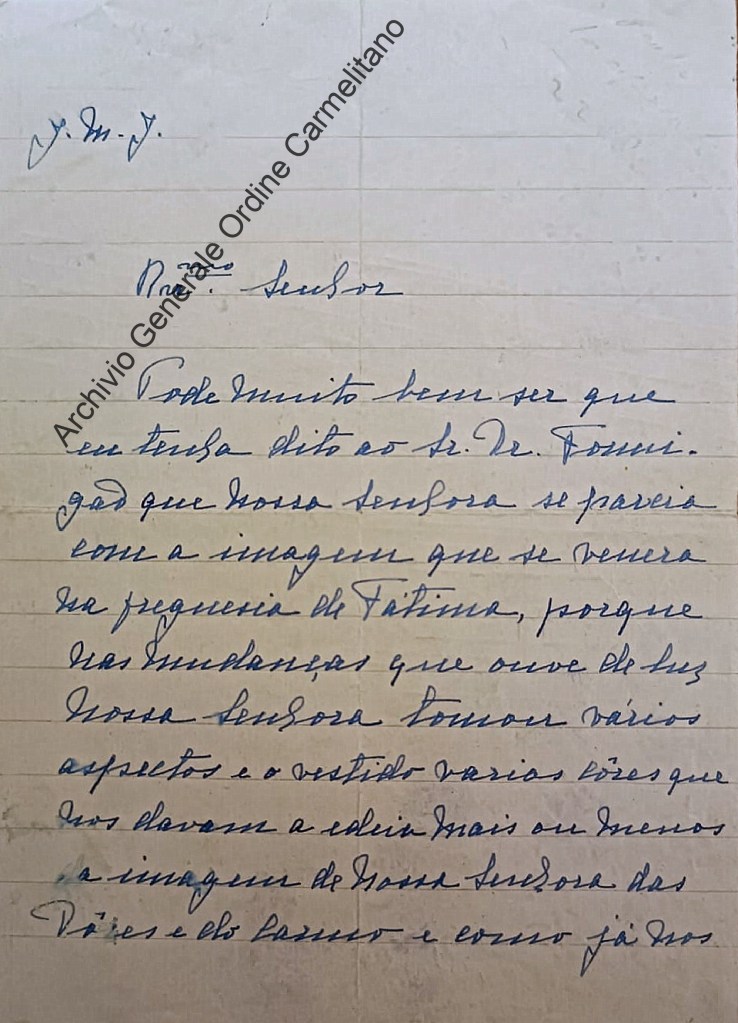 J. M. J.
Archivio Generale Ordine Carmelitano
Rev.mo Senhor
Pode muito bem ser que
eu tenha dito ao Sr. Dr. Formi-
gaõ que Nossa Senhora se parcia
com a imagem que se venera
na freguesia de Fátima, porque
nas mudanças que ouve de luz
Nossa Senhora tomou vários
aspectos e o vestido varias côres que
nos davam a edeia mais ou menos
a imagem de Nossa Senhora das
Dôres e do Carmo e como já nos